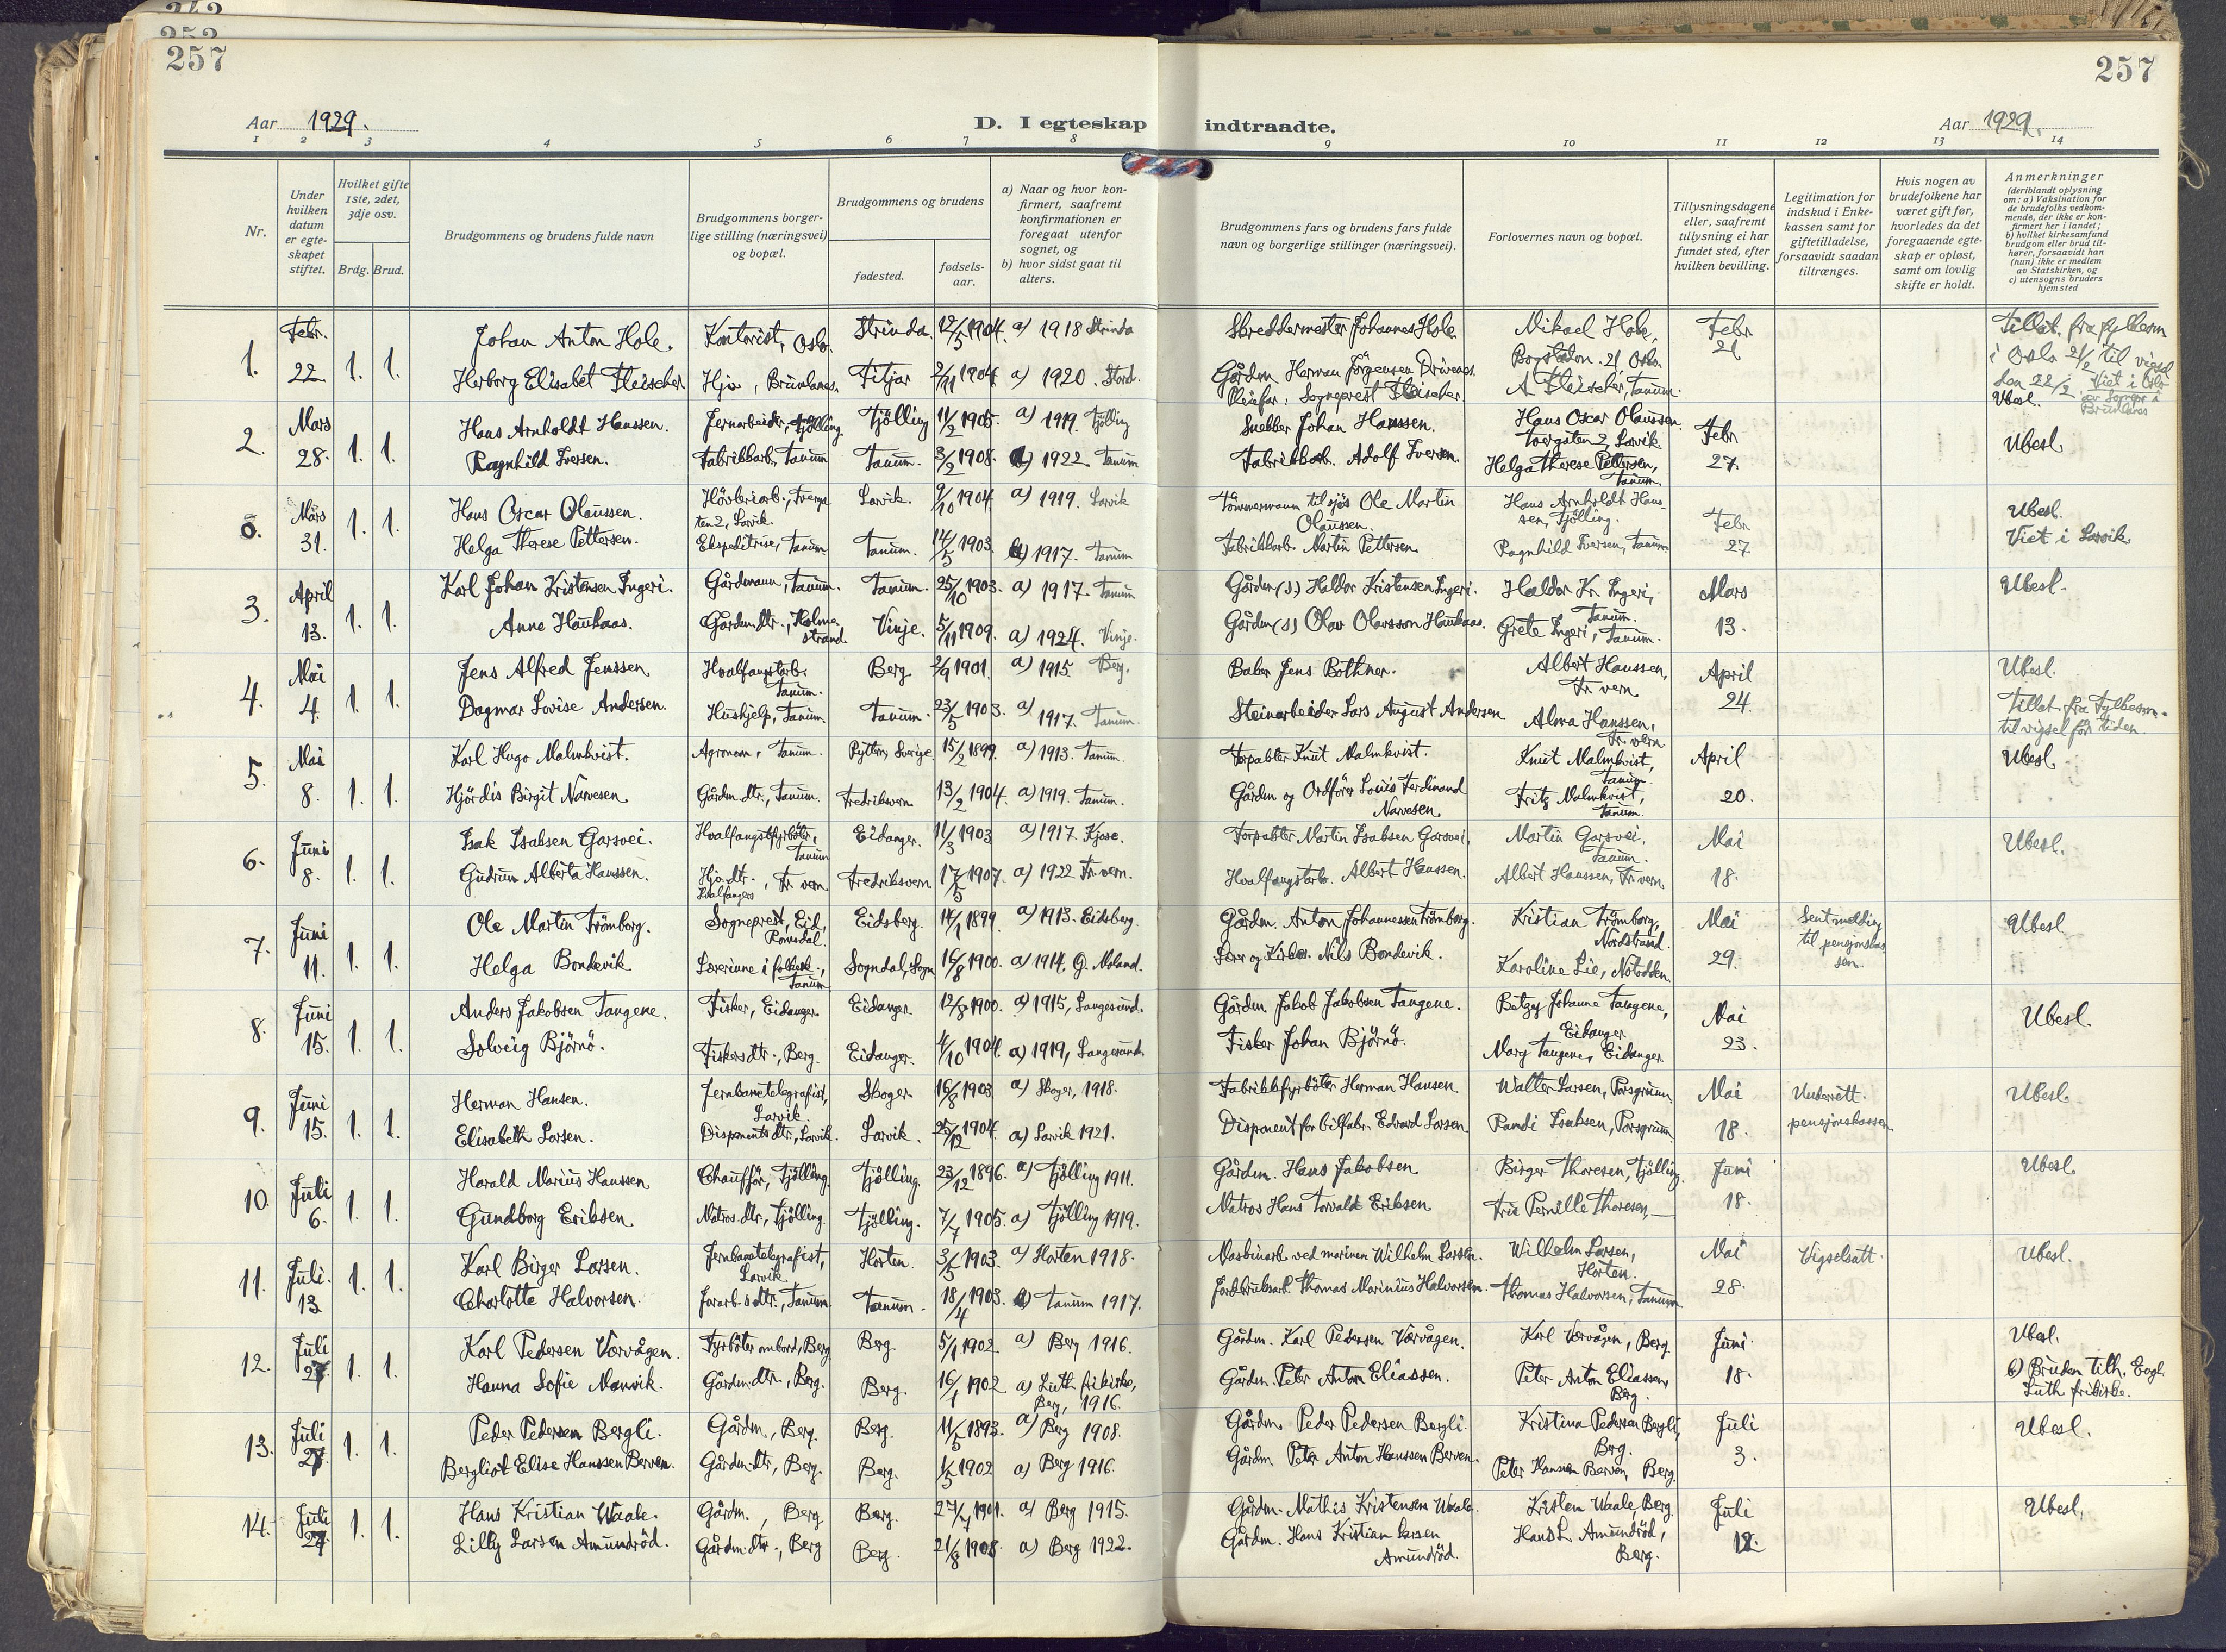 242
252
257
257
Aar 1929.
D. I egteskap indtraadte.
Aar 1929.
1 2 3 4 5 6 7 8 9 10 11 12 13 14
Nr.
Under hvilken datum er egteskapet stiftet.
Hvilket gifte 1ste, 2det, 3dje osv.
Brdg. Brud.
Brudgommens og brudens fulde navn
Brudgommens borgerlige stilling (næringsvei) og bopæl.
Brudgommens og brudens
fødested.
fødselsaar.
a) Naar og hvor konfirmert, saafremt konfirmationen er foregaat utenfor sognet, og
b) hvor sidst gaat til alters.
Brudgommens fars og brudens fars fulde navn og borgerlige stillinger (næringsvei).
Forlovernes navn og bopæl.
Tillysningsdagene eller, saafremt tillysning ei har fundet sted, efter hvilken bevilling.
Legitimation for indskud i Enkekassen samt for giftetilladelse, forsaavidt saadan tiltrænges.
Hvis nogen av brudefolkene har været gift før, hvorledes da det foregaaende egteskap er opløst, samt om lovlig skifte er holdt.
Anmerkninger
(deriblandt oplysning om: a) Vaksination for de brudefolks vedkommende, der ikke er konfirmert her i landet; b) hvilket kirkesamfund brudgom eller brud tilhører, forsaavidt han (hun) ikke er medlem av Statskirken, og c) utensogns bruders hjemsted
1. Febr. 22 1. 1. Johan Anton Hole. Kontorist, Oslo. Strinda. 12/5 1904. a) 1918 Strinda Skreddermester Johannes Hole Mikael Hole, Bogstadvn. 21, Oslo. Febr 21
Herborg Elisabet Fleischer. Hjv., Brunlanes. Fitjar 2/11 1904. a) 1920. Stord. Gårdm. Herman Jörgensen Drivenes. Pleiefar: Sogneprest Fleischer. A Fleischer, Tanum.
Tillat. fra fylkesm i Oslo 21/2 til vigsel den 22/2. Viet i Oslo Ubesl.
2. Mars 28. 1. 1. Hans Arnholdt Hanssen. Jernarbeider, Tjölling. Tjölling 11/2 1905. a) 1919. Tjölling Snekker Johan Hanssen. Hans Oscar Olaussen. Tvergaten 2, Larvik Febr 27. Ubesl
Ragnhild Iversen. Fabrikkarb., Tanum Tanum. 3/2 1908. a) 1922 Tanum Fabrikkarb. Adolf Iversen. Helga Therese Pettersen, Tanum.
0. Mars 31. 1. 1. Hans Oscar Olaussen. Hövleriarb., Tvergaten 2, Larvik. Larvik. 9/10 1904. a) 1919. Larvik Tömmermann tilsjös Ole Martin Olaussen. Hans Arnholdt Hanssen, Tjölling. Febr 27. Ubesl.
Helga Therese Pettersen. Ekspeditrise, Tanum Tanum. 14/5 1903. a) 1917. Tanum Fabrikkarb. Martin Pettersen. Ragnhild Iversen, Tanum Viet i Larvik
3. April 13. 1. 1. Karl Johan Kristensen Ingeri. Gårdmann, Tanum. Tanum. 25/10 1903. a) 1917. Tanum Gårdm (s.) Haldor Kristensen Ingeri. Haldor Kr. Ingeri, Tanum. Mars 13. Ubesl.
Anne Haukaas. Gårdm. dtr., Holmestrand. Vinje. 5/11 1909. a) 1924. Vinje. Gårdm (s) Olav Olavsson Haukaas. Grete Ingeri, Tanum.
4. Mai 4. 1. 1. Jens Alfred Jenssen Hvalfangstarb. Tanum. Berg 2/9 1901. a) 1915. Berg. Baker Jens Bothner. Albert Hanssen, Fr. vern April 24. Ubesl.
Dagmar Lovise Andersen. Hushjelp, Tanum. Tanum. 23/5 1903. a) 1917. Tanum. Steinarbeider Lars August Andersen Alma Hanssen, Fr. vern Tillat. fra Fylkesm. til vigsel för tiden.
5. Mai 8. 1. 1. Karl Hugo Malmkvist. Agronom, Tanum. Pyttern, Sverige. 15/2 1899. a) 1913. Tanum. Forpakter Knut Malmkvist. Knut Malmkvist, Tanum. April 20. Ubesl
Hjördis Birgit Narvesen. Gårdm. dtr., Tanum. Fredriksvern 13/2 1904. a) 1919. Tanum. Gårdm og Ordförer Louis Ferdinand Narvesen. Fritz Malmkvist, Tanum.
6. Juni 8. 1. 1. Isak Isaksen Garsvei. Hvalfangstfyrböter, Tanum Eidanger. 11/3 1903 a) 1917. Kjose. Forpakter Martin Isaksen Garsvei. Martin Garsvei, Tanum. Mai 18. Ubesl.
Gudrun Alberta Hanssen. Hjv. dtr., Fr. vern Fredriksvern 17/5 1907. a) 1922 Fr. vern. Hvalfangstarb. Albert Hanssen. Albert Hanssen, Fr. vern
7. Juni 11. 1. 1. Ole Martin Trömborg. Sogneprest, Eid, Romsdal. Eidsberg. 14/1 1899. a) 1913. Eidsberg. Gårdm. Anton Johannessen Trömborg. Kristian Trömborg, Nordstrand. Mai 29. Sent melding til pensjonskassen. Ubesl
Helga Bondevik. Lærerinne i folkesk., Tanum Sogndal, Sogn 16/8 1900. a) 1914. Lærer og Kirkes. Nils Bondevik. Karoline Lie, Notodden.
8. Juni 15. 1. 1. Anders Jakobsen Tangene. Fisker, Eidanger. Eidanger 12/8 1900. a) 1915, Langesund. Gårdm Jakob Jakobsen Tangene. Betzy Johanne Tangene, Eidanger Mai 23. Ubesl.
Solveig Björnö. Fiskersdtr., Berg. Eidanger. 4/10 1904. a) 1919, Langesund. Fisker Johan Björnö. Mary Tangene, Eidanger
9. Juni 15. 1. 1. Herman Hansen. Jernbanetelegrafist, Larvik. Skoger 16/8 1903 a) Skoger, 1918. Fabrikkfyrböter Herman Hansen Walter Larsen, Porsgrunn. Mai 18. Underrett. pensjonskassen Ubesl.
Elisabeth Larsen. Disponents dtr., Larvik. Larvik. 25/12 1904. a) Larvik 1921. Disponent for oilfabr. Edvard Larsen. Randi Isaksen, Porsgrunn.
10. Juli 6. 1. 1. Harald Marius Hanssen Chauffør, Tjölling. Tjölling. 23/12 1896. a) Tjölling 1911. Gårdm. Hans Jakobsen Birger Thoresen, Tjölling. Juni 18. Ubesl
Gundborg Eriksen. Matros. dtr, Tjölling. Tjölling. 7/7 1905. a) Tjölling 1919. Matros Hans Torvald Eriksen. Fru Pernille Thoresen, —
11. Juli. 13 1. 1. Karl Birger Larsen. Jernbanetelegrafist, Larvik Horten. 3/5 1903. a) Horten 1918. Maskinarb. ved marinen Wilhelm Larsen. Wilhelm Larsen, Horten. Mai 28. Vigselsatt. Ubesl.
Charlotte Halvorsen. Jorarb.s dtr., Tanum Tanum. 18/4 1903. a) Tanum 1917. Jordbruksarb. Thomas Marinius Halvorsen. Thomas Halvorsen, Tanum
12. Juli 27. 1. 1. Karl Pedersen Vævågen. Fyrböter ombord, Berg Berg. 5/1 1902. a) Berg 1916. Gårdm. Karl Pedersen Værvågen. Karl Værvågen, Berg. Juni 18. Ubesl.
Hanna Sofie Manvik. Gårdm. dtr., Berg. Berg. 16/1 1902 a) Luth. frikirke, Berg, 1916. Gårdm. Peter Anton Eliassen. Peter Anton Eliassen, Berg. b) Bruden tilh. Evgl. Luth frikirke.
13. Juli 27. 1. 1. Peder Pedersen Bergli. Gårdm., Berg. Berg. 11/5 1893. a) Berg 1908. Gårdm. Peder Pedersen Bergli. Kristina Pedersen Bergli, Berg. Juli 3. Ubesl.
Bergliot Elise Hanssen Berven. Gårdm. dtr, Berg. Berg. 1/5 1902 a) Berg 1916. Gårdm. Peter Anton Hanssen Berven. Peter Hanssen Berven, Berg
14. Juli 27 1. 1. Hans Kristian Waale. Gårdm., Berg Berg. 27/7 1901. a) Berg 1915. Gårdm. Mathis Kristensen Waale. Kristen Waale, Berg Juli 12. Ubesl.
Lilly Larsen Amundröd. Gårdm. dtr., Berg Berg. 21/8 1908. a) Berg 1922. Gårdm. Hans Kristian Larsen Amundröd. Hans L. Amundröd, Berg.